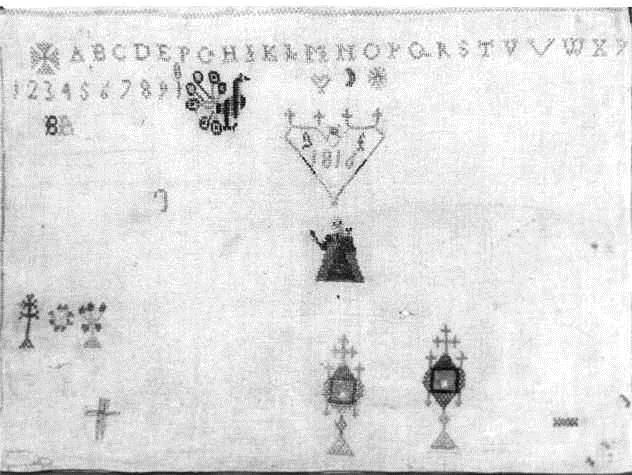 A B C D E F G H I K L M N O P Q R S T V U W X Y
1 2 3 4 5 6 7 8 9 1
1816